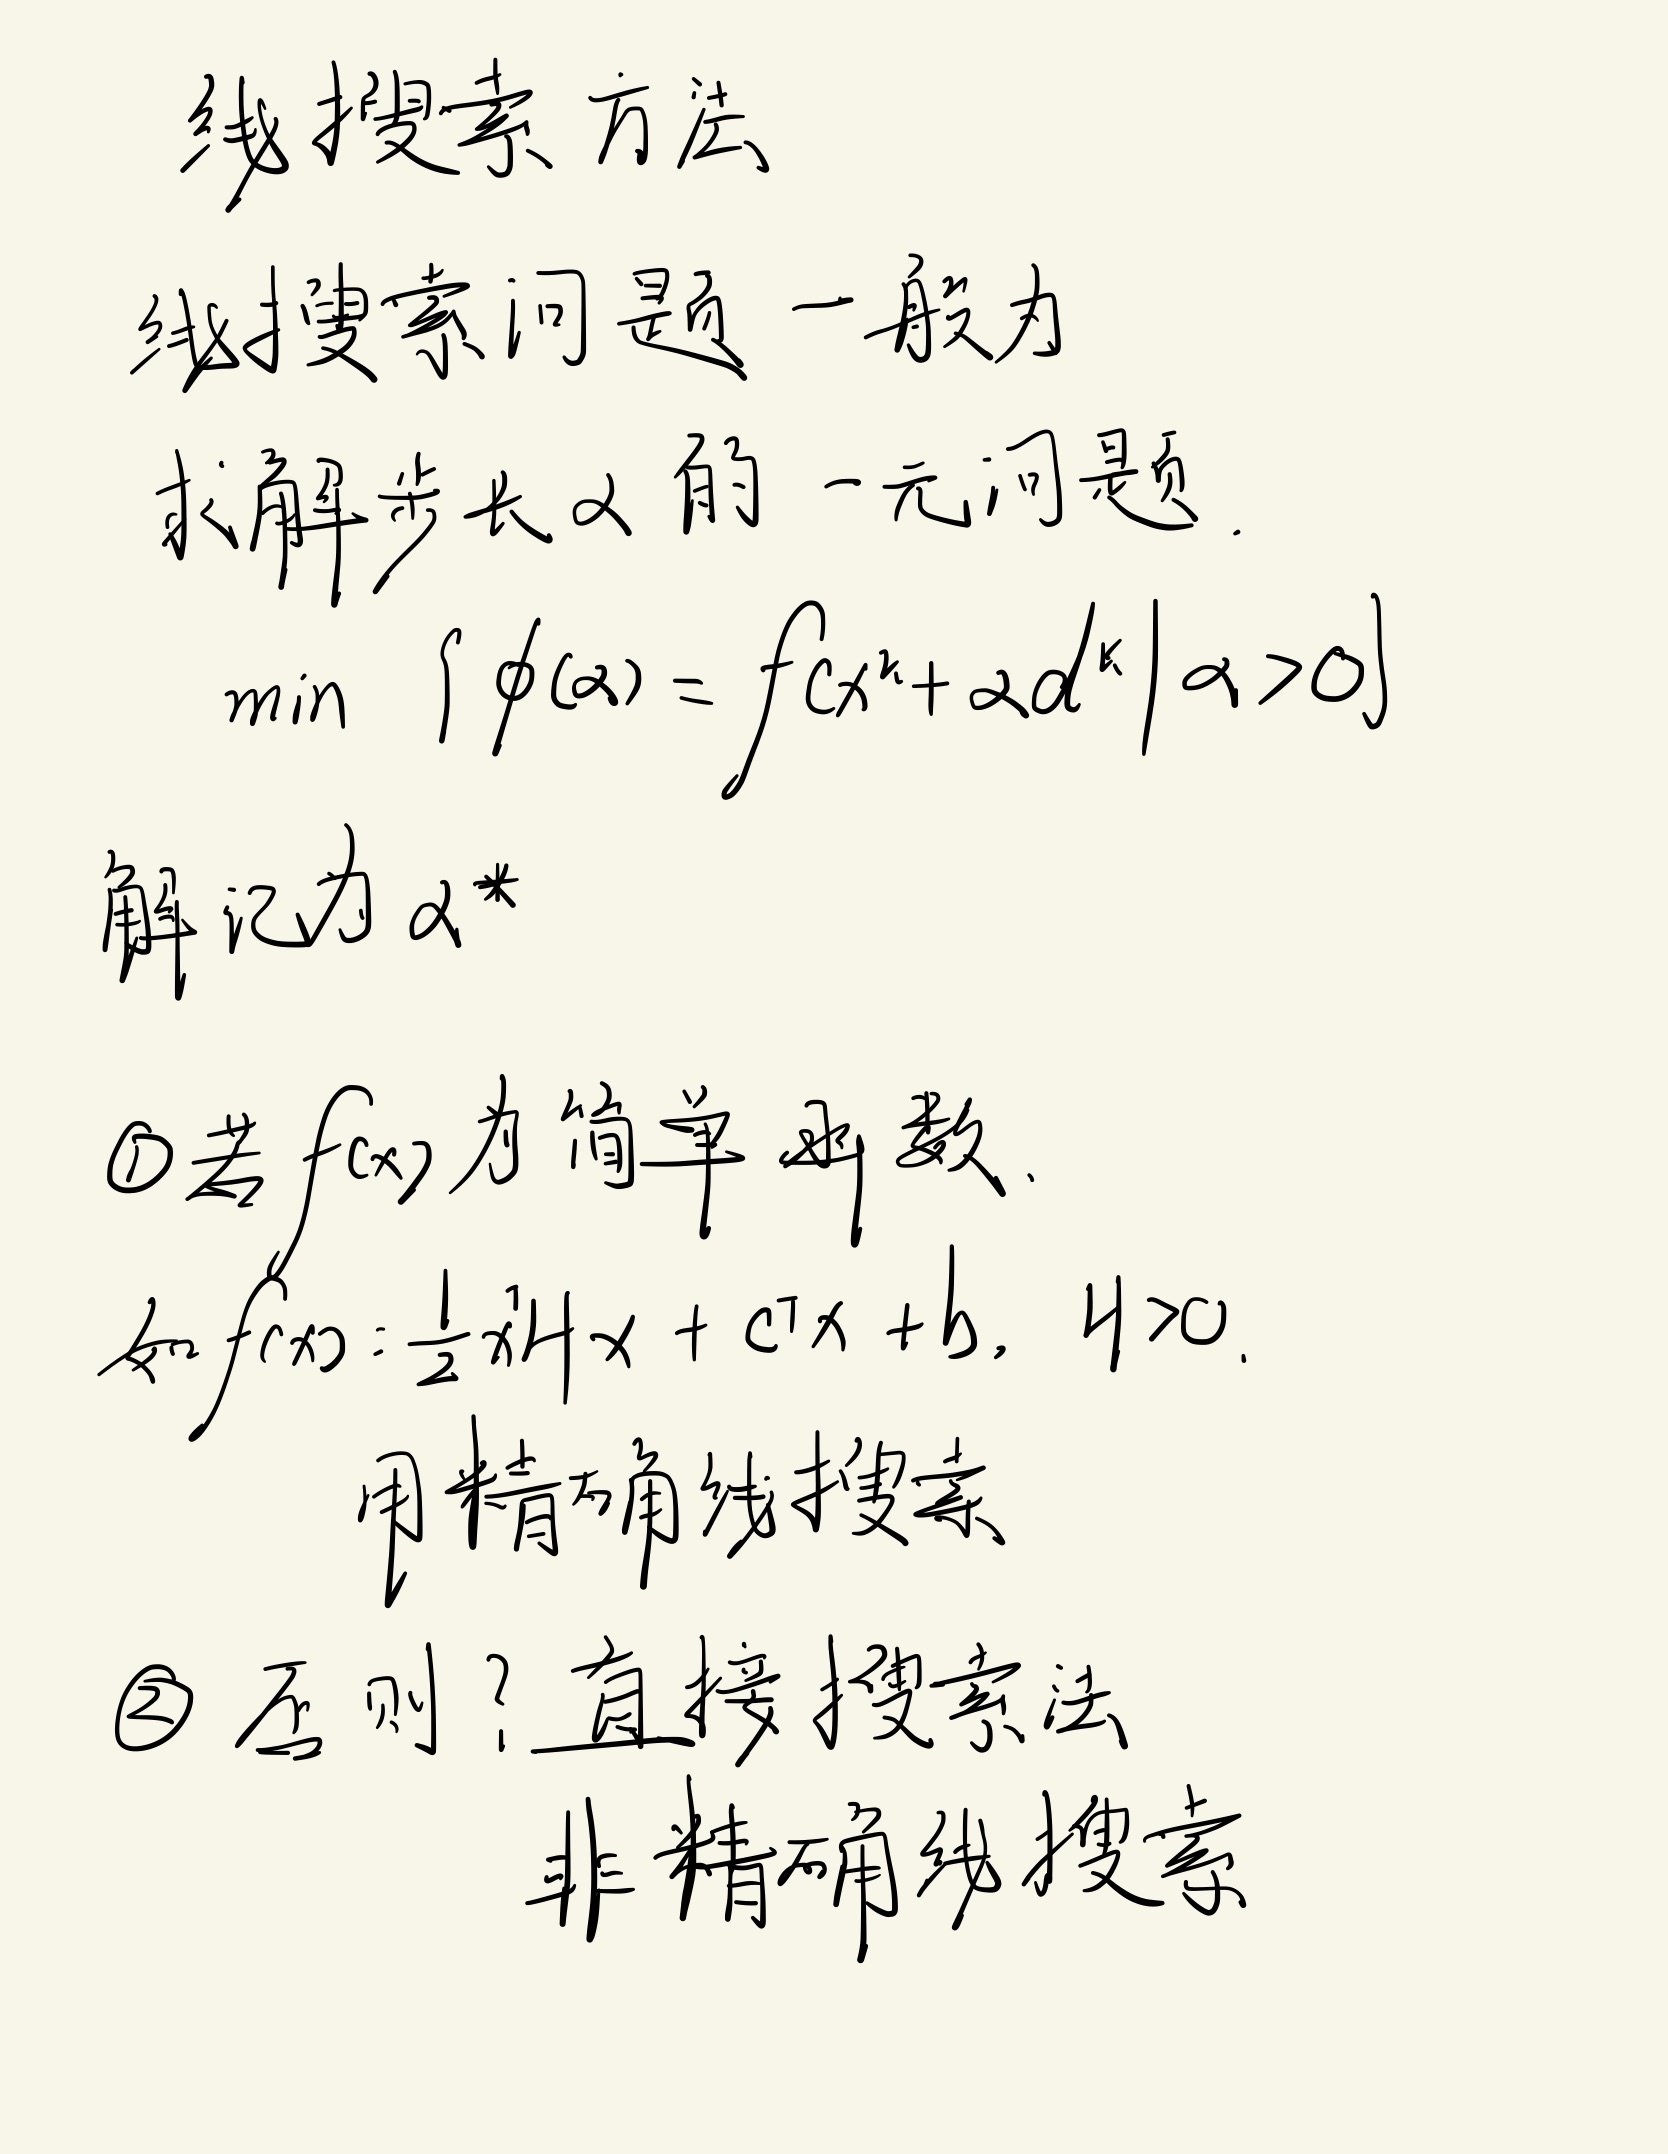 线搜索方法
线搜索问题一般为
求解步长α的一元问题.
min { φ(α) = f(x^k + αd^k | α>0}
解记为α*
①若f(x)为简单函数.
如f(x) = 1/2 x^T H x + c^T x + b, H>0.
用精确线搜索
②否则?直接搜索法
非精确线搜索